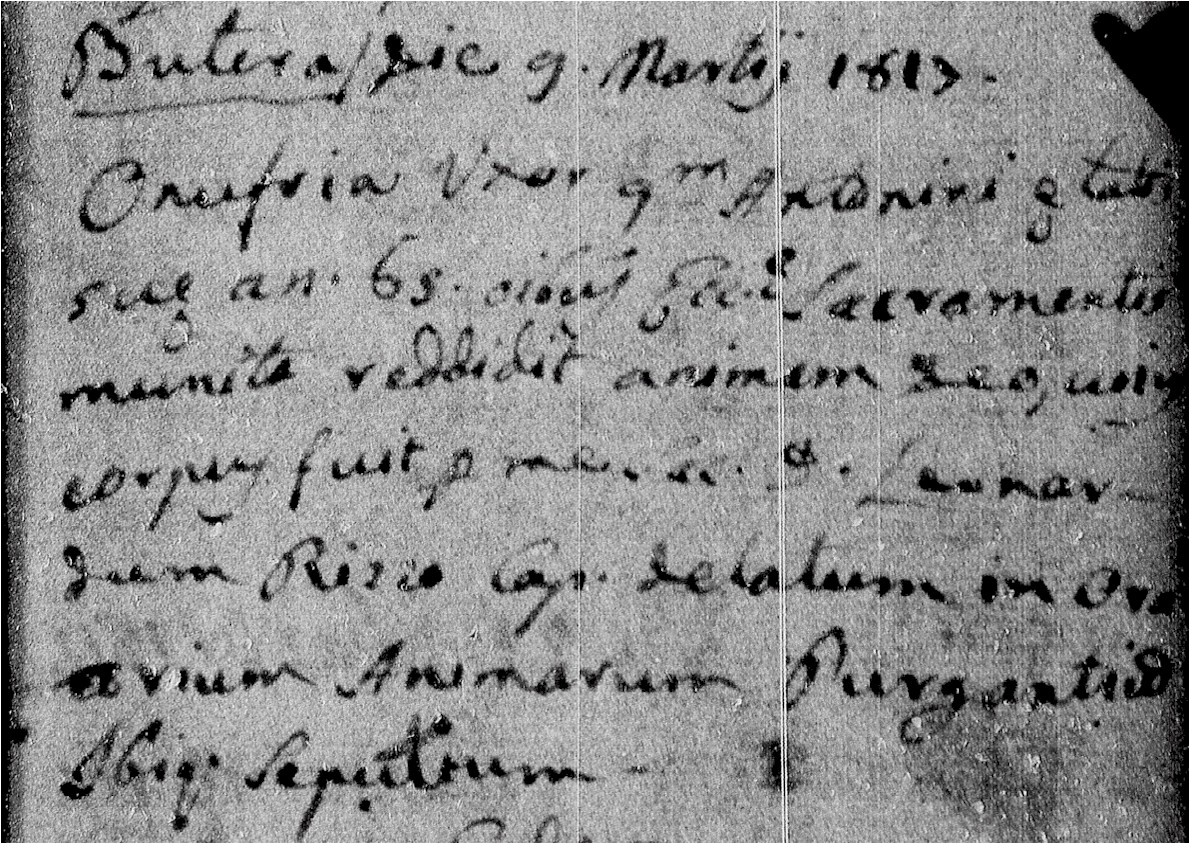 Butera/ Die 9. Martij 1817.
Onufria Uxor qm Antonini ętatis
suę an. 65. Sacramentis
munita reddidit animam Deo, cuius
corpus fuit p me D. Leonar-
dum Rizzo Cap. delatum in Ora
torium Animarum Purgantiũ
Ibiq; sepultum -